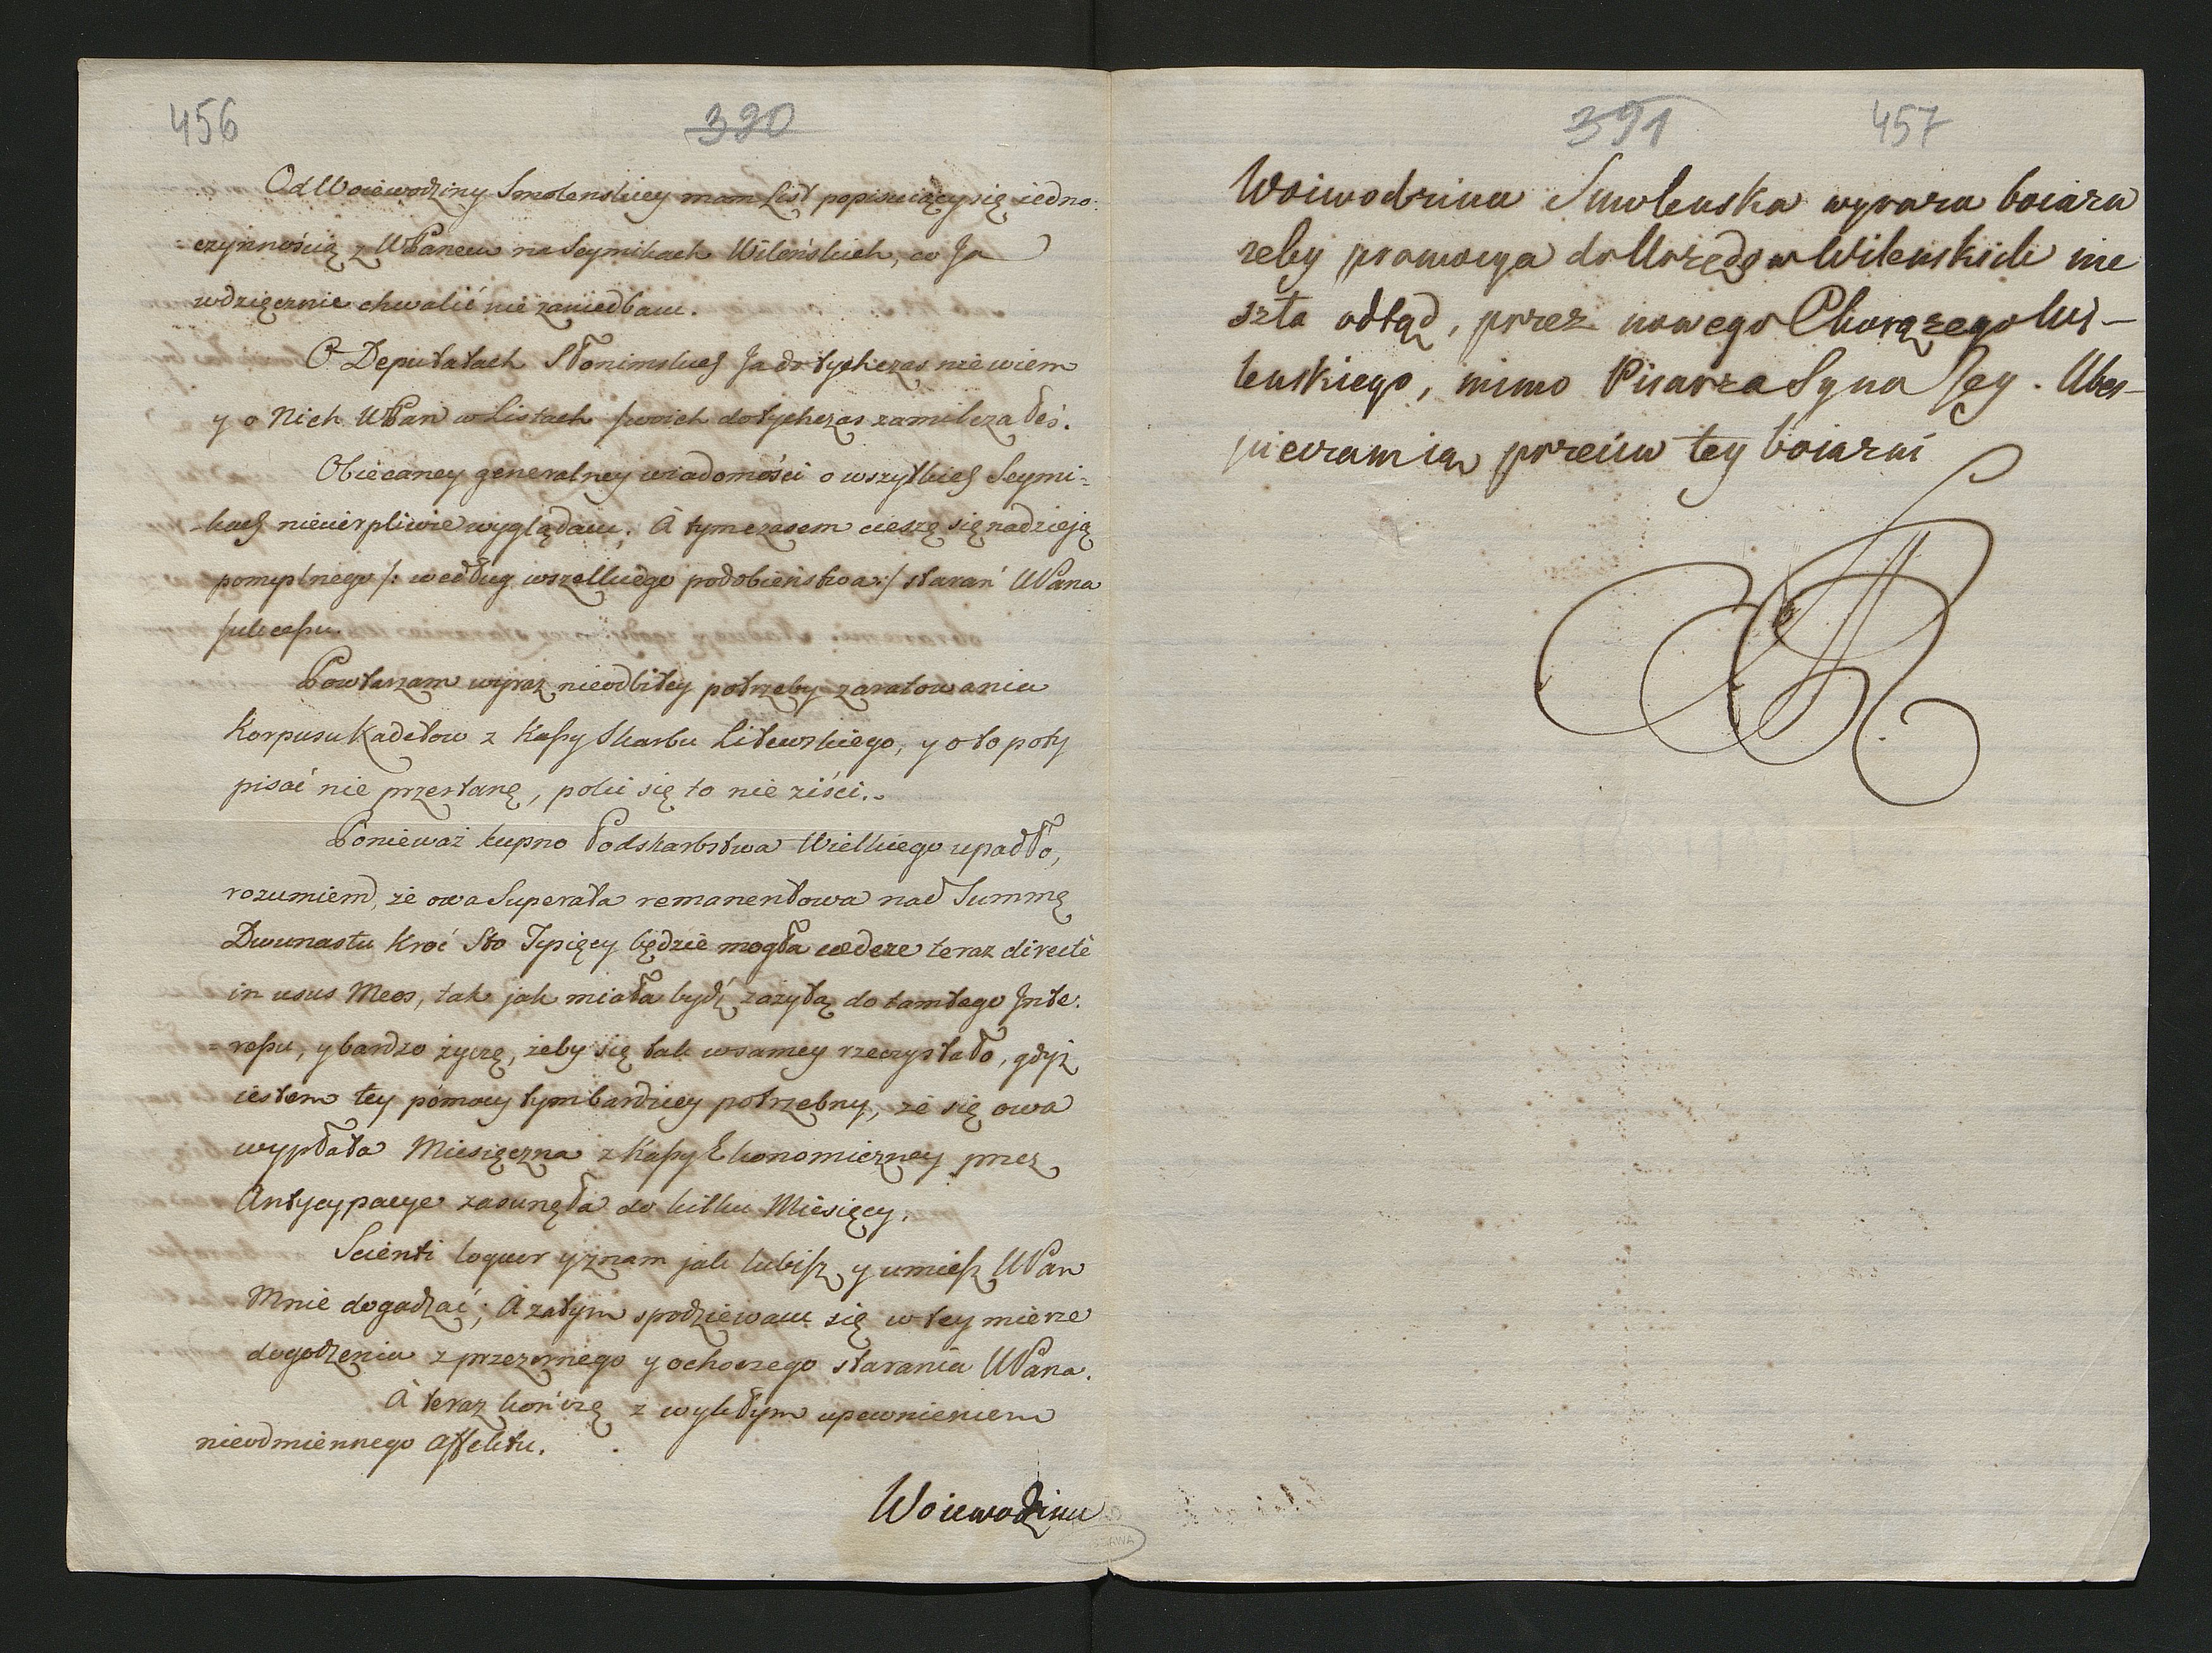 456
390
Od Woiewodziny Smolenskiey mam List popisuiący się iedno-
czynnością z WPanem na Seymikach Wileńskich, co Ja
wdzięcznie chwalić nie zaniedbam.
O Deputatach Słonimskich Ja dotychczas nie wiem
y o Nich WPan w Listach swoich dotychczas zamilczałeś.
Obiecaney generalney wiadomości o wszytkich Seymi-
-kach niecierpliwie wyglądam; A tymczasem cieszę się nadzieją
pomyslnego /: według wszelkiego podobieństwa :/ starań WPana
sukcessu.
Powtarzam wyraz nieodbitey potrzeby zaratowania
Korpusu Kadetow z Kassy Skarbu Litewskiego, y o to poty
pisać nie przestanę, poki się to nie ziści.
Ponieważ kupno Podskarbstwa Wielkiego upadło,
rozumiem, że owa Superata remanentowa nad Summę
Dwunastu Kroć Sto Tysięcy będzie mogła wedrze teraz directé
in usus Meos, tak jak miała bydź zażytą do tamtego Inte-
-ressu, y bardzo życzę, żeby się tak w samey rzeczy stało, gdyż
iestem tey pomocy tym bardziey potrzebny, że się owa
wypłata Miesięczna z Kassy Ekonomiczney przez
Antycypacye zasunęła do kilku Miesięcy.
Scienti loquor y znam jak lubisz y umiesz WPan
Mnie dogadzać; A zatym spodziewam się w tey mierze
dogodzenia z przezornego y ochoczego starania WPana.
A teraz kończę z wykłym upewnieniem
nieodmiennego affektu.
Woiewodzina
391
457
Woiwodzina Smolenska wyraza boiazn
zeby promocya do Urzędow Wilenskich nie
szła odtąd, przez nowego Chorązego Wi-
lenskiego, mimo Pisarza Syna Jey. Ubes-
pieczam ią przeciw tey boiazni